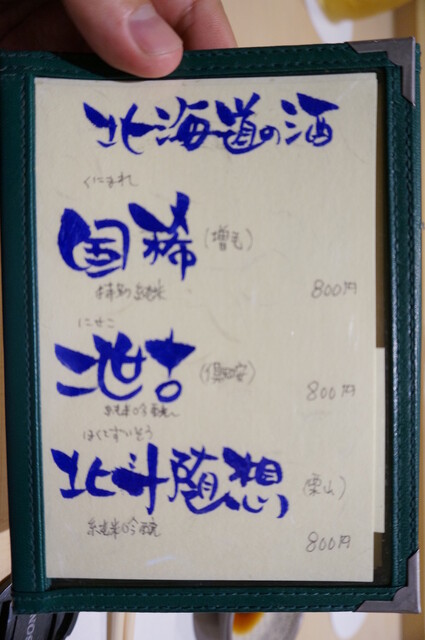 北海道の酒
くにまれ
国稀 (増毛)
特別純米 800円
にせこ
二世古 (倶知安)
純米吟醸 800円
ほくとずいそう
北斗随想 (栗山)
純米吟醸 800円